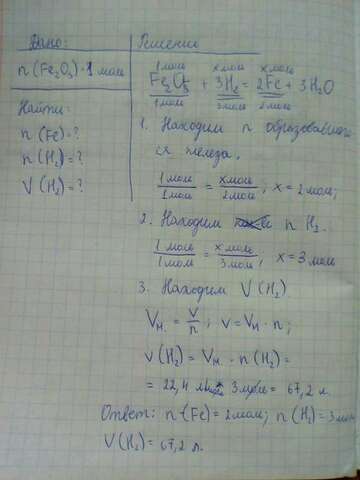 Дано:
n(Fe₂O₃)·1 моль
Найти:
n(Fe)=?
n(H₂)=?
V(H₂)=?
Решение
1 моль x моль x моль
Fe₂O₃ + 3H₂ = 2Fe + 3H₂O
1 моль 3 моль 2 моль
1. Находим n образовавшего
ся железа.
1 моль/1 моль = x моль/2 моль; x = 2 моль;
2. Находим n H₂.
1 моль/1 моль = x моль/3 моль, x = 3 моль
3. Находим V(H₂)
Vм. = V/n; V = Vм · n;
V(H₂) = Vм. · n(H₂) =
= 22,4 3 моль = 67,2 л.
Ответ: n(Fe) = 2 моль; n(H₂) = 3 моль
V(H₂) = 67,2 л.